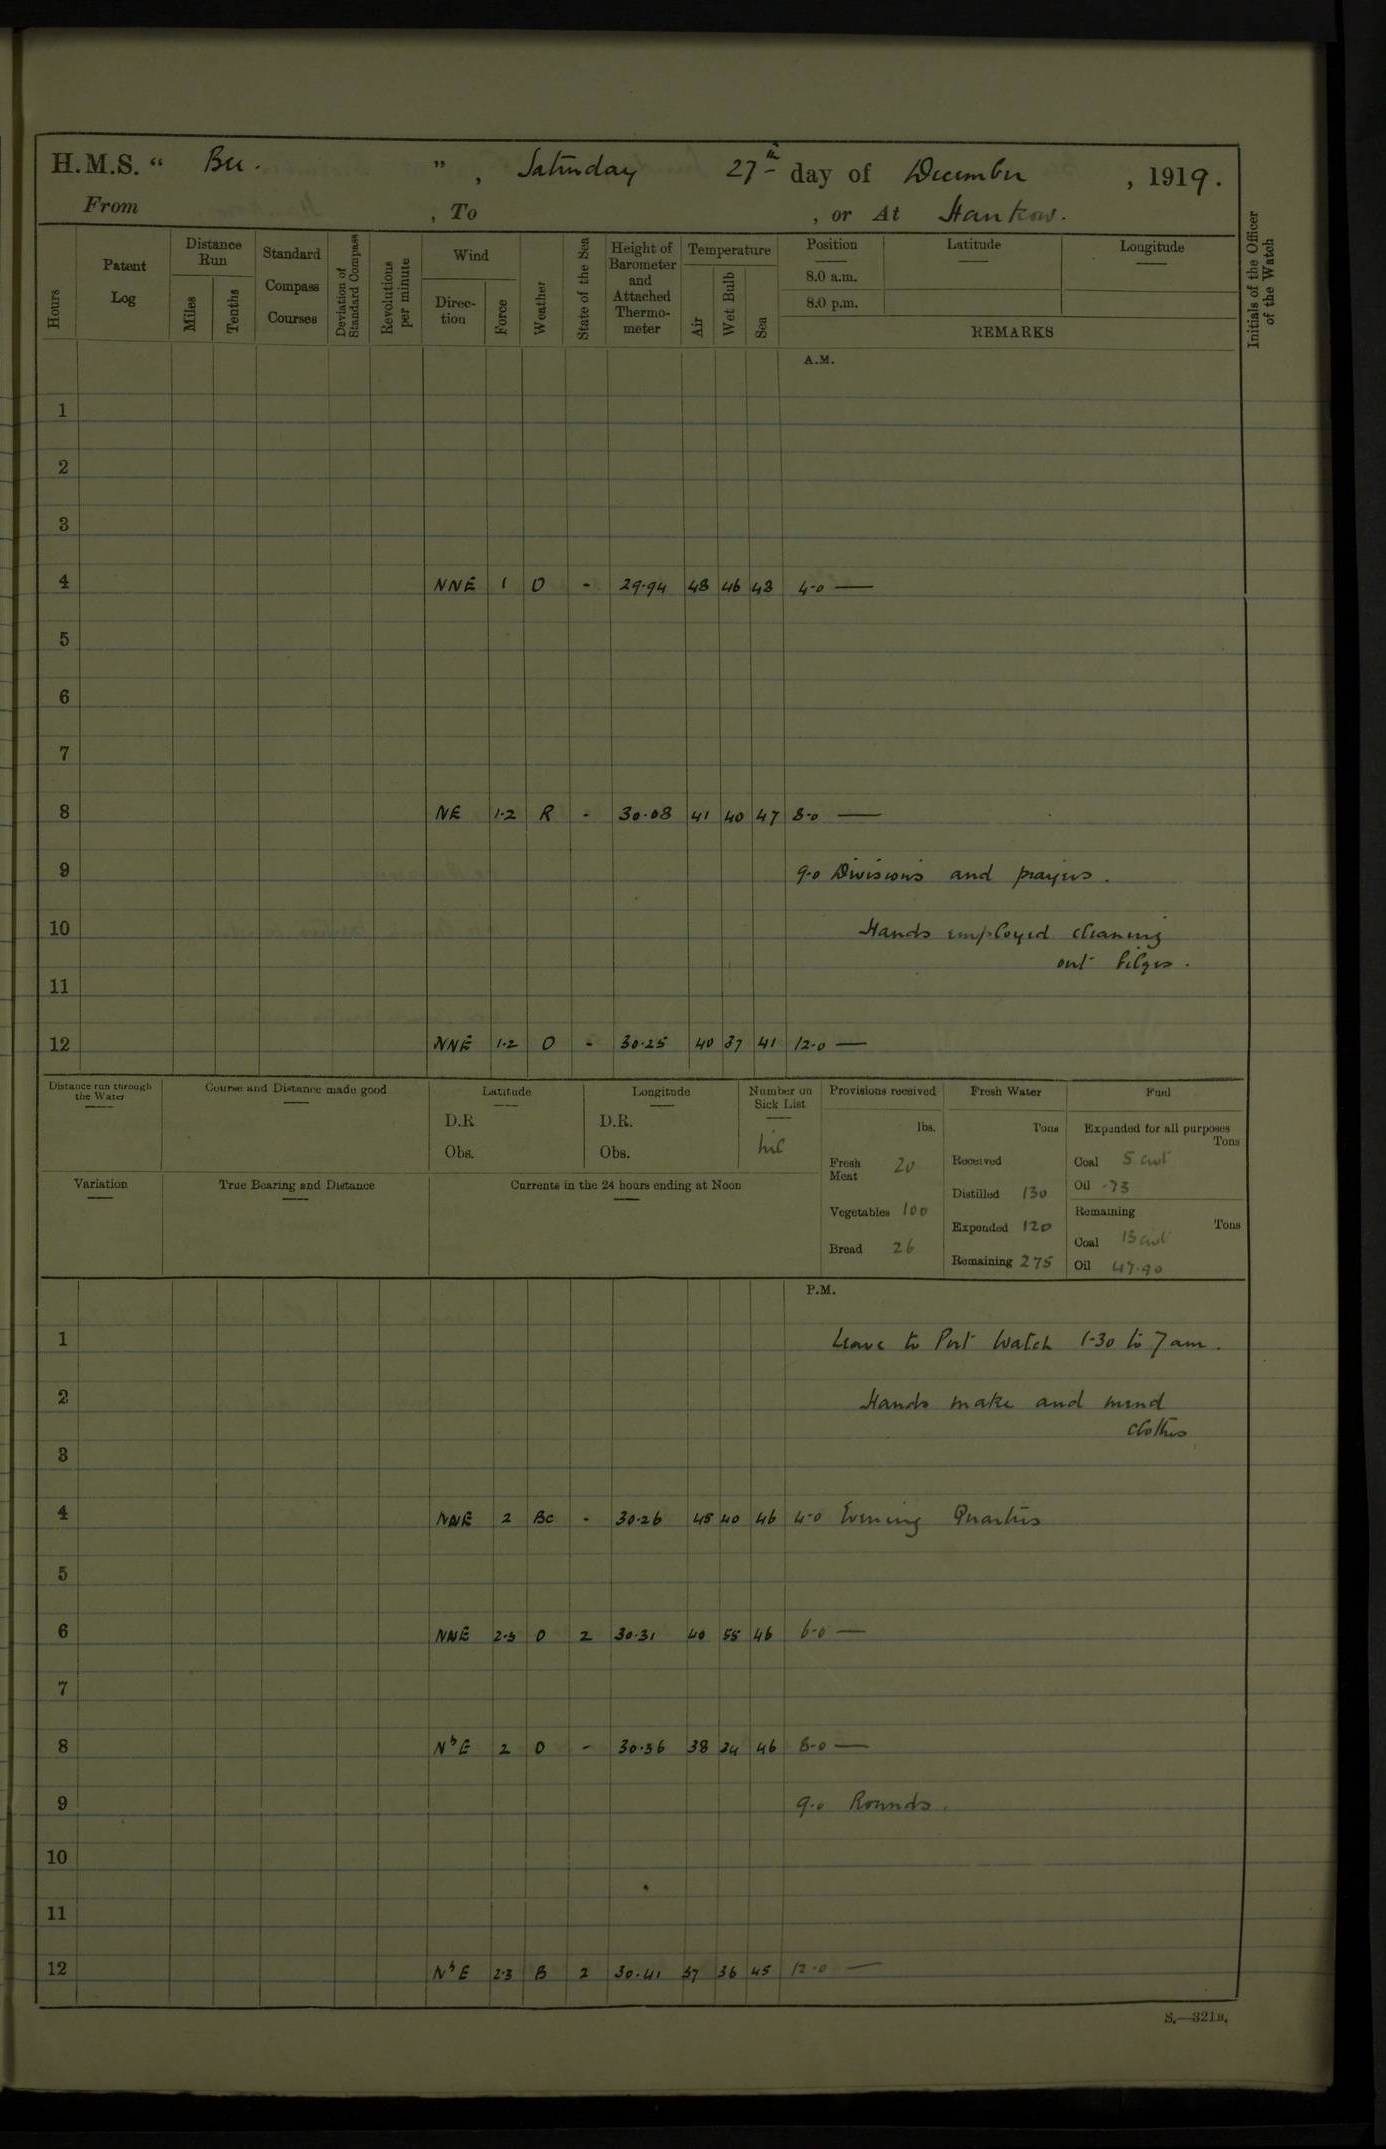 H.M.S. “ Bee. ” , Saturday 27th day of December , 1919.
From , To , or At Hankow.
Hours
Patent Log
Distance Run
Miles
Tenths
Standard Compass Courses
Deviation of Standard Compass
Revolutions per minute
Wind
Direction
Force
Weather
State of the Sea
Height of Barometer and Attached Thermometer
Temperature
Air
Wet Bulb
Sea
Position
8.0 a.m.
8.0 p.m.
Latitude
Longitude
REMARKS
Initials of the Officer of the Watch
A.M.
1
2
3
4 NNE 1 O - 29.94 48 46 48 4-0 —
5
6
7
8 NE 1.2 R - 30.08 41 40 47 8-0 —
9 9-0 Divisions and prayers.
10 Hands employed cleaning
out bilges.
11
12 NNE 1.2 O - 30.25 40 37 41 12-0 —
Distance run through the Water
Course and Distance made good
Latitude
D.R
Obs.
Longitude
D.R.
Obs.
Number on Sick List
nil
Provisions received
lbs.
Fresh Meat 20
Vegetables 100
Bread 26
Fresh Water
Tons
Received
Distilled 130
Expended 120
Remaining 275
Fuel
Expended for all purposes
Tons
Coal 5 cwt
Oil .73
Remaining
Tons
Coal 13 cwt
Oil 47.90
Variation
True Bearing and Distance
Currents in the 24 hours ending at Noon
P.M.
1 Leave to Port Watch 1-30 to 7 am.
2 Hands make and mend
clothes
3
4 NNE 2 Bc - 30.26 45 40 46 4-0 Evening Quarters
5
6 NNE 2.3 O 2 30.31 40 55 46 6-0 —
7
8 NbE 2 O - 30.36 38 34 46 8-0 —
9 9-0 Rounds.
10
11
12 NbE 2.3 B 2 30.41 37 36 45 12-0 —
S.—321B.